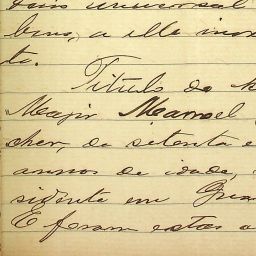 universal
bens, a elle
to.
Titulo do
Major Manoel
cher, de setenta e
annos de idade,
sidente em
E foram estas a